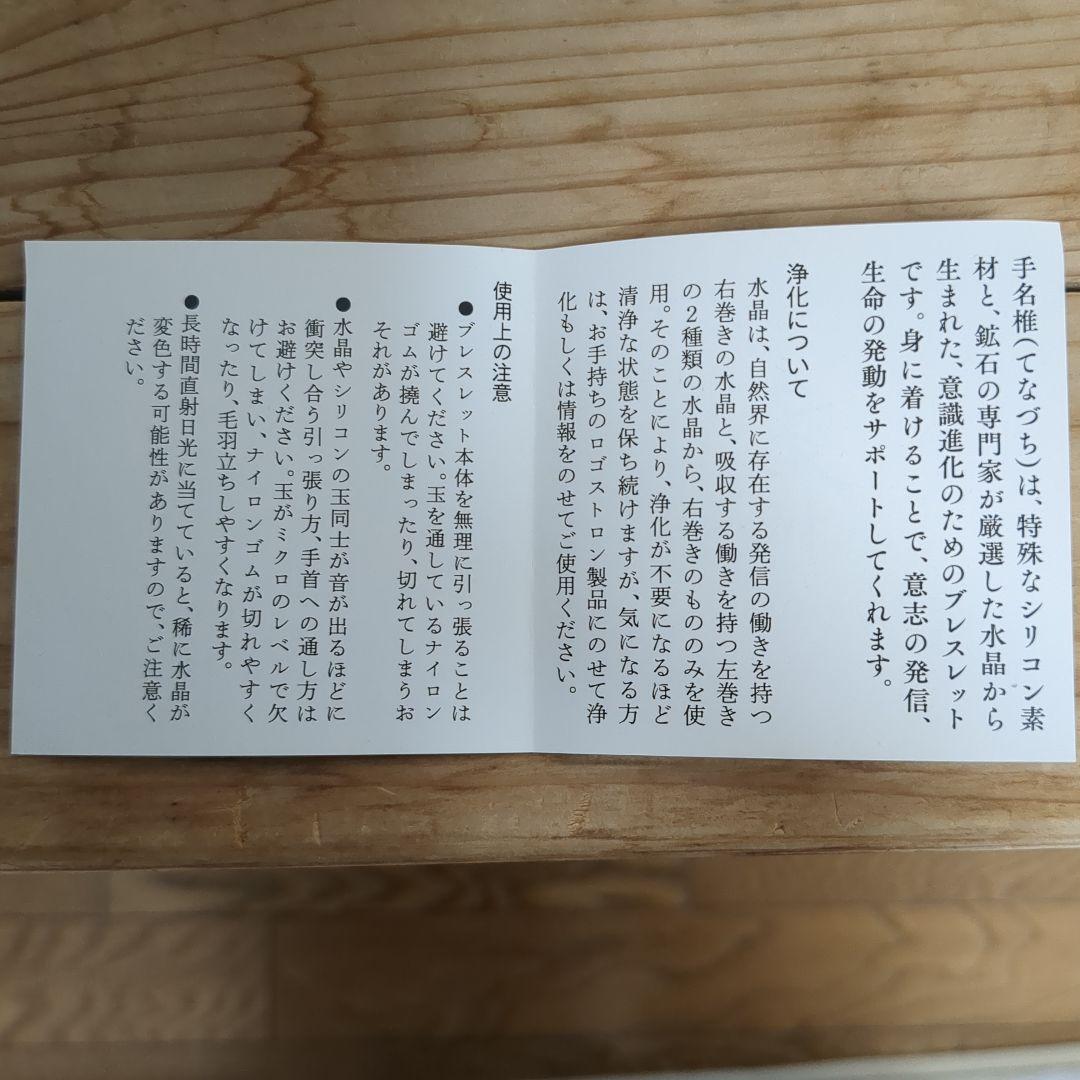 手名椎(てなづち)は、特殊なシリコン素
材と、鉱石の専門家が厳選した水晶から
生まれた、意識進化のためのブレスレット
です。身に着けることで、意志の発信、
生命の発動をサポートしてくれます。
浄化について
水晶は、自然界に存在する発信の働きを持つ
右巻きの水晶と、吸収する働きを持つ左巻き
の2種類の水晶から、右巻きのもののみを使
用。そのことにより、浄化が不要になるほど
清浄な状態を保ち続けますが、気になる方
は、お手持ちのロゴストロン製品にのせて浄
化もしくは情報をのせてご使用ください。
使用上の注意
●ブレスレット本体を無理に引っ張ることは
避けてください。玉を通しているナイロン
ゴムが撓んでしまったり、切れてしまうお
それがあります。
●水晶やシリコンの玉同士が音が出るほどに
衝突し合う引っ張り方、手首への通し方は
お避けください。玉がミクロのレベルで欠
けてしまい、ナイロンゴムが切れやすく
なったり、毛羽立ちしやすくなります。
●長時間直射日光に当てていると、稀に水晶が
変色する可能性がありますので、ご注意く
ださい。